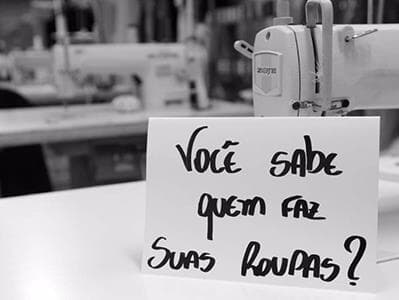 ZOJE
VOCÊ SABE
QUEM FAZ
SUAS ROUPAS?